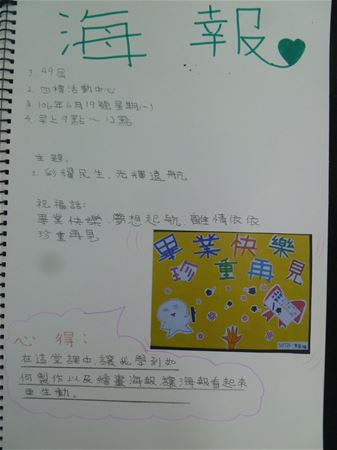 海報
1. 49屆
2. 四樓活動中心
3. 106年6月19號星期(一)
4. 早上9點～12點
主題:
1. 幻耀民生、光輝遠航
祝福語:
畢業快樂、夢想起航、離情依依
珍重再見
畢業快樂
珍重再見
心得:
在這堂課中讓我學到如
何製作以及繪畫海報讓海報看起來
更生動。